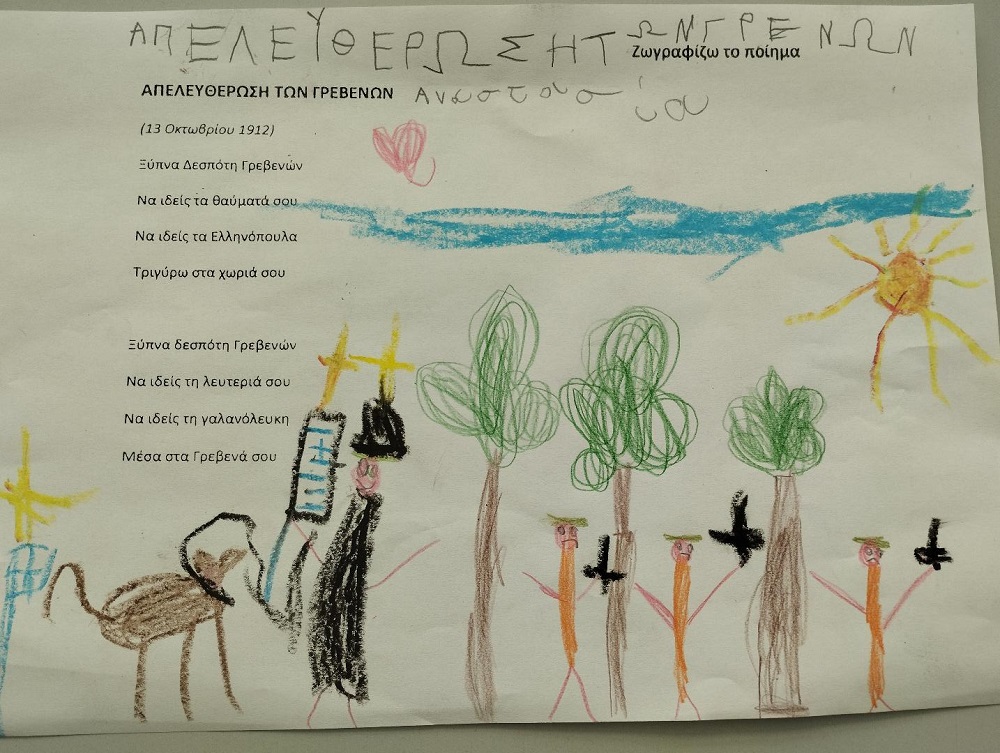 ΑΠΕΛΕΥΘΕΡΩΣΗΤΩΝΓΡΕΝΩΝ
Ζωγραφίζω το ποίημα
ΑΠΕΛΕΥΘΕΡΩΣΗ ΤΩΝ ΓΡΕΒΕΝΩΝ
Αναστασία
(13 Οκτωβρίου 1912)
Ξύπνα Δεσπότη Γρεβενών
Να ιδείς τα θαύματά σου
Να ιδείς τα Ελληνόπουλα
Τριγύρω στα χωριά σου
Ξύπνα δεσπότη Γρεβενών
Να ιδείς τη λευτεριά σου
Να ιδείς τη γαλανόλευκη
Μέσα στα Γρεβενά σου